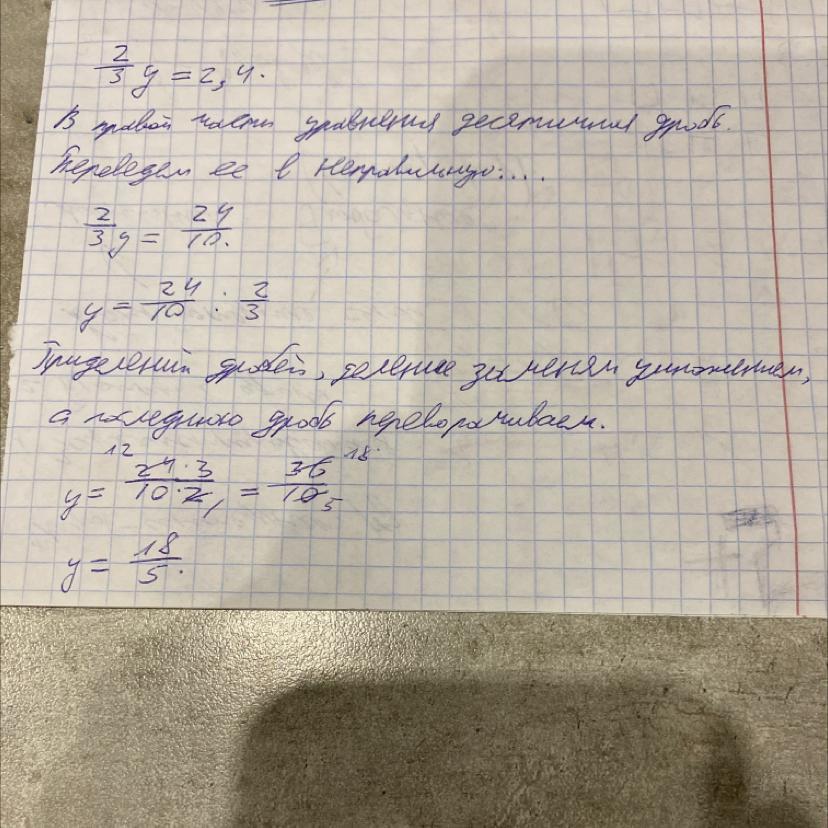 2/3 y = 2,4.
В правой части уравнения десятичная дробь.
Переведем ее в неправильную:....
2/3 y = 24/10.
y = 24/10 : 2/3
При делении дробей, деление заменям умножением,
а последнюю дробь переворачиваем.
y = 12 24·3 / 10·2 1 = 36 18 / 10 5
y = 18/5.